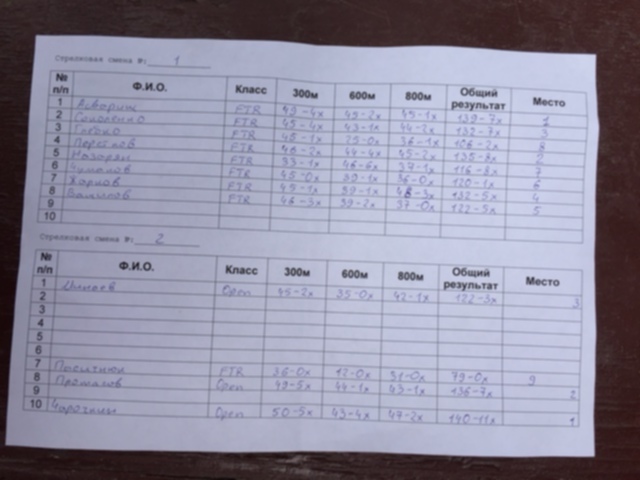 Стрелковая смена №: 1
№ п/п Ф.И.О. Класс 300м 600м 800м Общий результат Место
1 FTR 45-2x 45-1x 139-7x 1
2 FTR 45-4x 43-1x 44-2x 132-7x 3
3 FTR 45-1x 25-0x 36-1x 106-2x 8
4 FTR 46-2x 44-4x 45-2x 2
5 FTR 33-1x 46-6x 37-1x 116-8x 7
6 FTR 45-0x 39-1x 36-0x 120-1x 6
7 Жарков FTR 45-1x 39-1x 48-3x 132-5x 4
8 FTR 46-3x 39-2x 37-0x 122-5x 5
9
10
Стрелковая смена №: 2
№ п/п Ф.И.О. Класс 300м 600м 800м Общий результат Место
1 Open 45-2x 35-0x 42-1x 122-3x 3
2
3
4
5
6
7 FTR 36-0x 12-0x 31-0x 79-0x 9
8 Open 49-5x 44-1x 43-1x 136-7x 2
9
10 Open 50-5x 43-4x 47-2x 140-11x 1